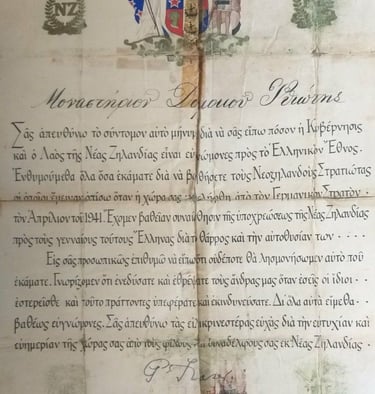 NZ
Μοναστήριον
Σᾶς ἀπευθύνω τὸ σύντομον αὐτὸ μήνυμα διὰ νὰ σᾶς εἴπω πόσον ἡ Κυβέρνησις
καὶ ὁ Λαὸς τῆς Νέας Ζηλανδίας εἶναι εὐγνώμονες πρὸς τὸ Ἑλληνικὸν Ἔθνος.
Ἐνθυμούμεθα ὅλα ὅσα ἐκάματε διὰ νὰ βοηθήσετε τοὺς Νεοζηλανδοὺς Στρατιώτας
οἱ ὁποῖοι ὅταν ἡ χώρα σας ἀπὸ τὸν Γερμανικὸν Στρατὸν
τὸν Ἀπρίλιον τοῦ 1941. Ἔχομεν βαθεῖαν συναίσθησιν τῆς ὑποχρεώσεως τῆς Νέας Ζηλανδίας
πρὸς τοὺς γενναίους τούτους Ἕλληνας διὰ τὸ θάρρος καὶ τὴν αὐτοθυσίαν των ....
Εἰς σᾶς προσωπικῶς ἐπιθυμῶ νὰ εἴπω ὅτι οὐδέποτε θὰ λησμονήσωμεν αὐτὸ ποὺ
ἐκάματε. Γνωρίζομεν ὅτι ἐνεδύσατε καὶ ἐθρέψατε τοὺς ἄνδρας μας ὅταν ἐσεῖς οἱ ἴδιοι ....
ἐστερεῖσθε καὶ τοῦτο πράττοντες ὑπεφέρατε καὶ ἐκινδυνεύσατε. Δι' ὅλα αὐτὰ εἴμεθα ..
βαθέως εὐγνώμονες. Σᾶς ἀπευθύνω τὰς εἰλικρινεστέρας εὐχὰς διὰ τὴν εὐτυχίαν καὶ
εὐημερίαν τῆς χώρας σας ἀπὸ τοὺς φίλους καὶ συναδέλφους σας ἐκ Νέας Ζηλανδίας.